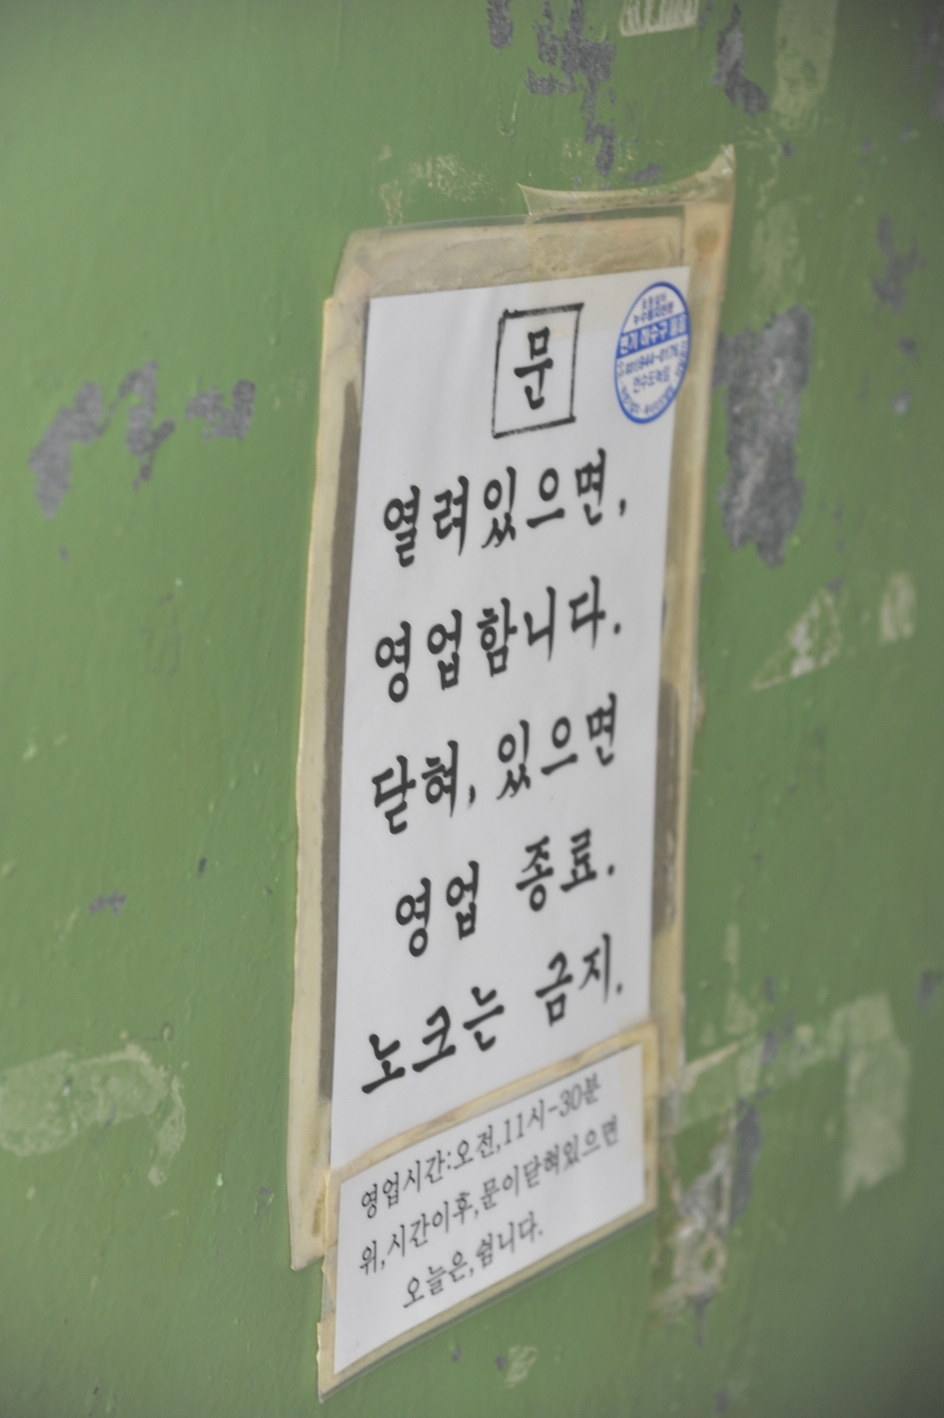 문
열려있으면,
영업합니다.
닫혀, 있으면
영업 종료.
노크는 금지.
영업시간:오전,11시-30분
위,시간이후,문이닫혀있으면
오늘은,쉽니다.